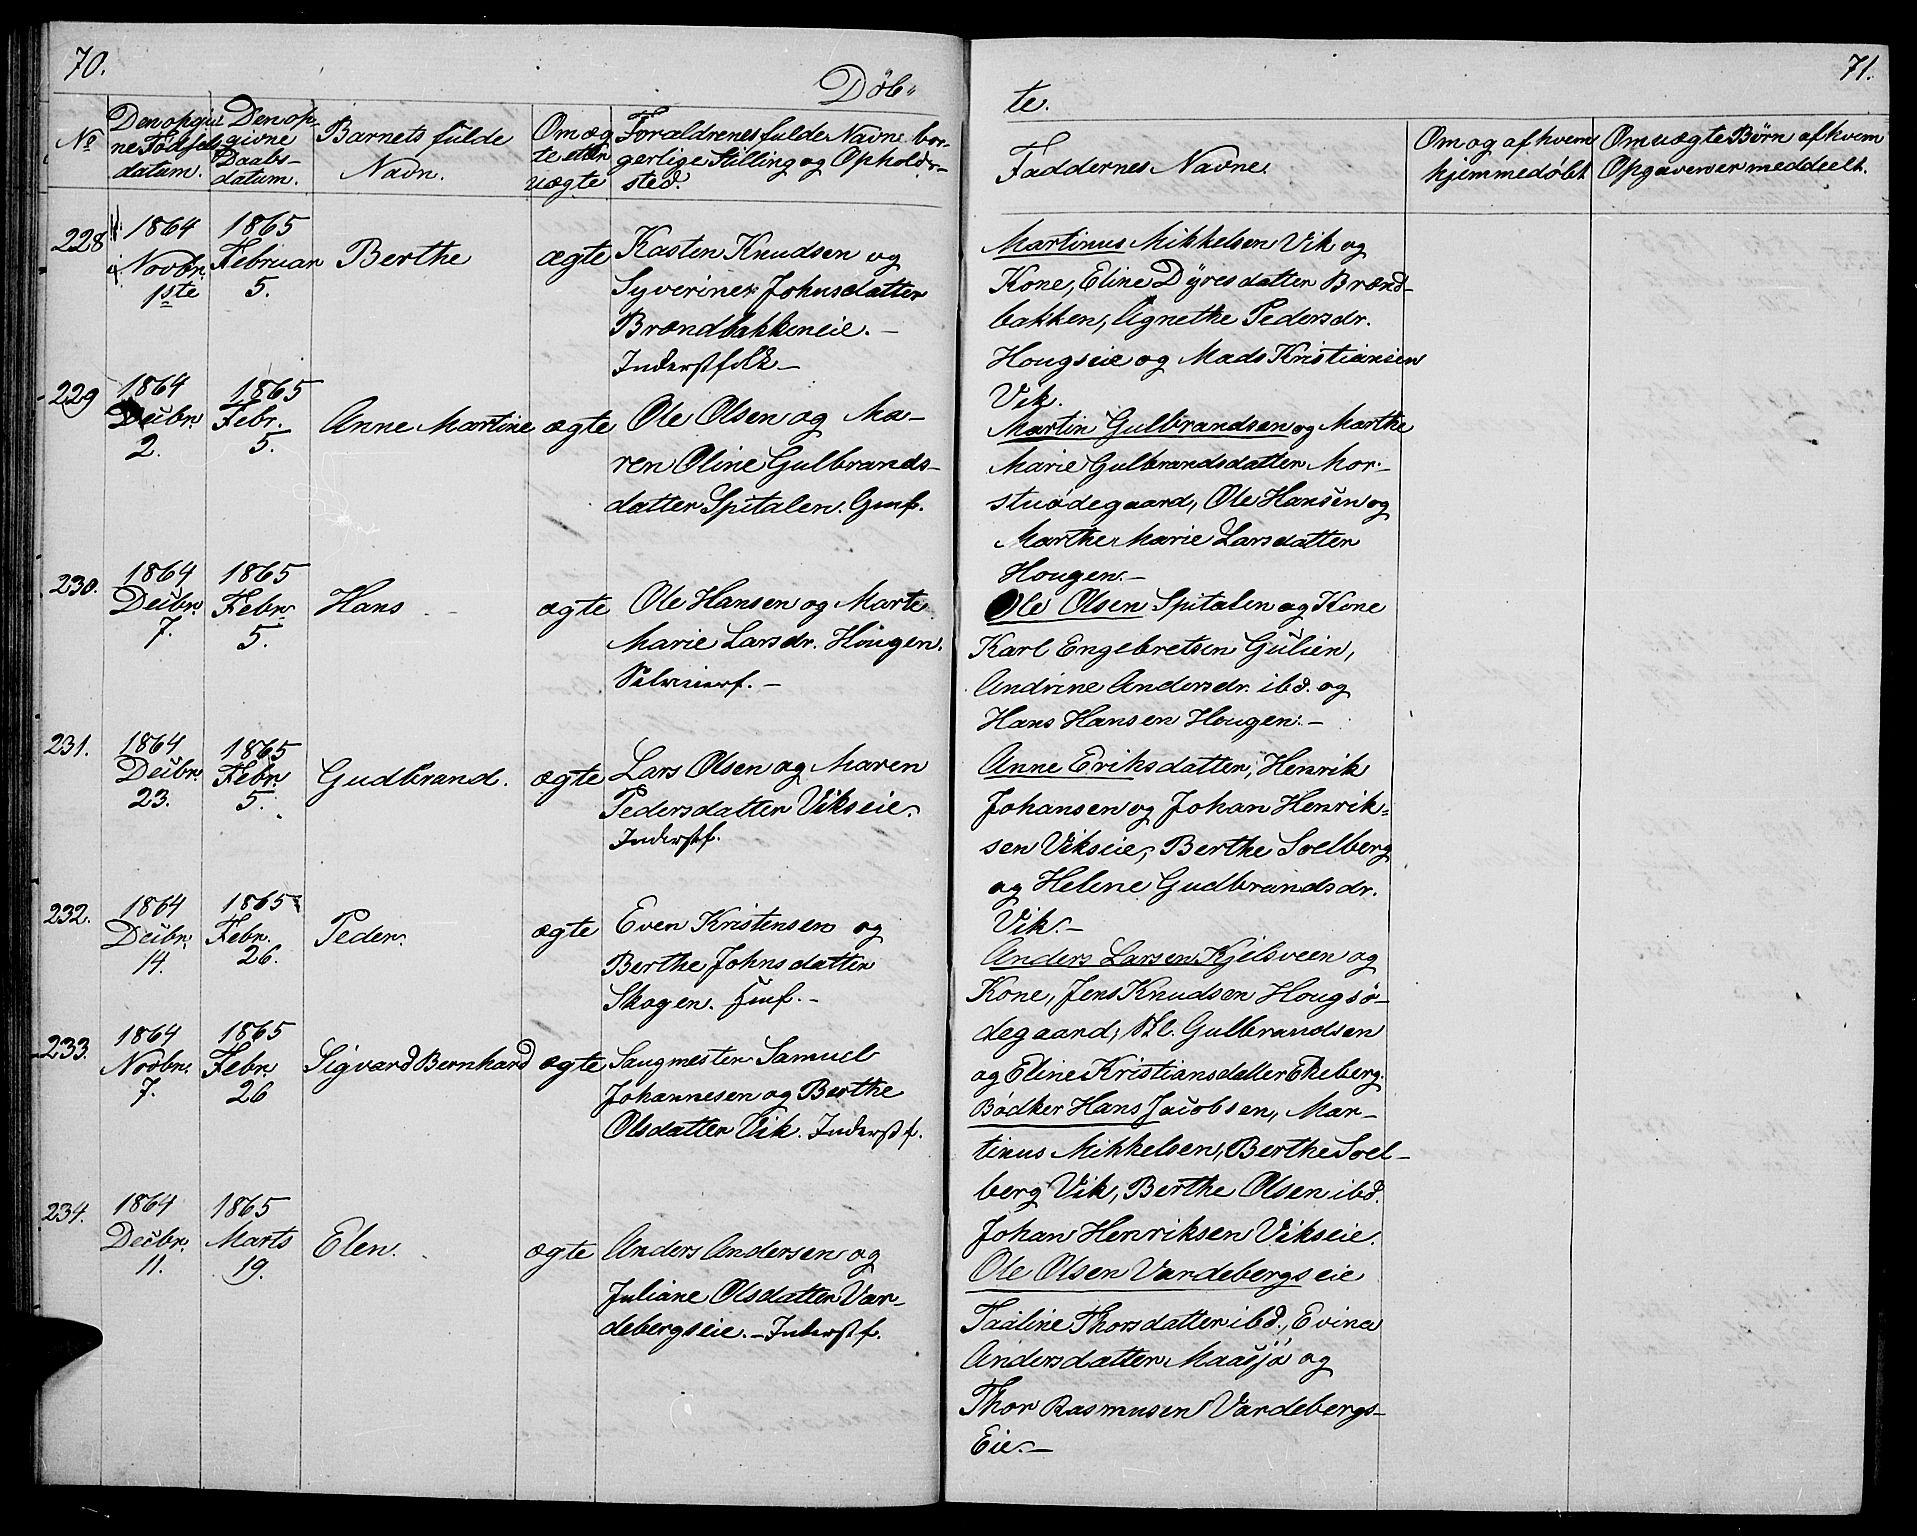 70.
Døb-
No
Den opgiv-
ne Fødsels
datum.
Den op-
givne
Daabs-
datum.
Barnets fulde
Navn.
Om æg
te eller
uægte
Forældrenes fulde Navne bor-
gerlige Stilling og Opholds-
sted.
228
1864
Novbr.
1ste
1865
Februar
5.
Berthe
ægte
Kasten Knudsen og
Syverine Johnsdatter
Brændbakkeneie. -
Inderstfolk -
229
1864
Decbr.
2.
1865
Febr.
5.
Anne Martine
ægte
Ole Olsen og Ma-
ren Oline Gulbrands-
datter Spitalen. Gmf.
230.
1864
Decbr.
7.
1865
Febr.
5.
Hans
ægte
Ole Hansen og Marte
Marie Larsdr. Hougen.
Selveierf. -
231.
1864
Decbr.
23.
1865
Febr.
5.
Gudbrand.
ægte
Lars Olsen og Maren
Pedersdatter Vikseie.
Inderstf.
232.
1864
Decbr.
14.
1865
Febr.
26.
Peder.
ægte
Even Kristensen og
Berthe Johnsdatter
Skogen. -
233.
1864
Novbr.
7.
1865
Febr.
26
Sigvard Bernhard
ægte
Saugmester Samuel
Johannesen og Berthe
Olsdatter Vik. Inderstf.
234.
1864
Decbr.
11.
1865
Marts
19.
Elen.
ægte
Anders Andersen og
Juliane Olsdatter Var-
debergseie. - Inderstf.
71.
te.
Faddernes Navne.
Om og af hvem
hjemmedøbt
Om uægte Børn af hvem
Opgaven er meddeelt.
Martinus Mikkelsen Vik og
Kone, Eline Dyresdatter Brænd-
bakken, Agnethe Pedersdr.
Hougseie og Mads Kristiansen
Vik.
Martin Gulbrandsen og Marthe
Marie Gulbrandsdatter Mor-
stuødegaard, Ole Hansen og
Marthe Marie Larsdatter
Hougen. -
Ole Olsen Spitalen og Kone
Karl Engebretsen Gulien,
Andrine Andersdr. ibd. og
Hans Hansen Hougen. -
Anne Eriksdatter, Henrik
Johansen og Johan Henrik-
sen Vikseie, Berthe Soelberg
og Helene Gudbrandsdr.
Vik. -
Anders Larsen Kjelsveen og
Kone, Jens Knudsen Hougsø-
degaard, Gulbrandsen
og Eline Kristiansdatter Ekeberg.
Bødker Hans Jacobsen, Mar-
tinus Mikkelsen, Berthe Soel-
berg Vik, Berthe Olsen ibd.
Johan Henriksen Vikseie.
Ole Olsen Vardebergseie
Thorsdatter ibd., Evine
Andersdatter Maasjø og
Thor Rasmusen Vardebergs-
Eie. -